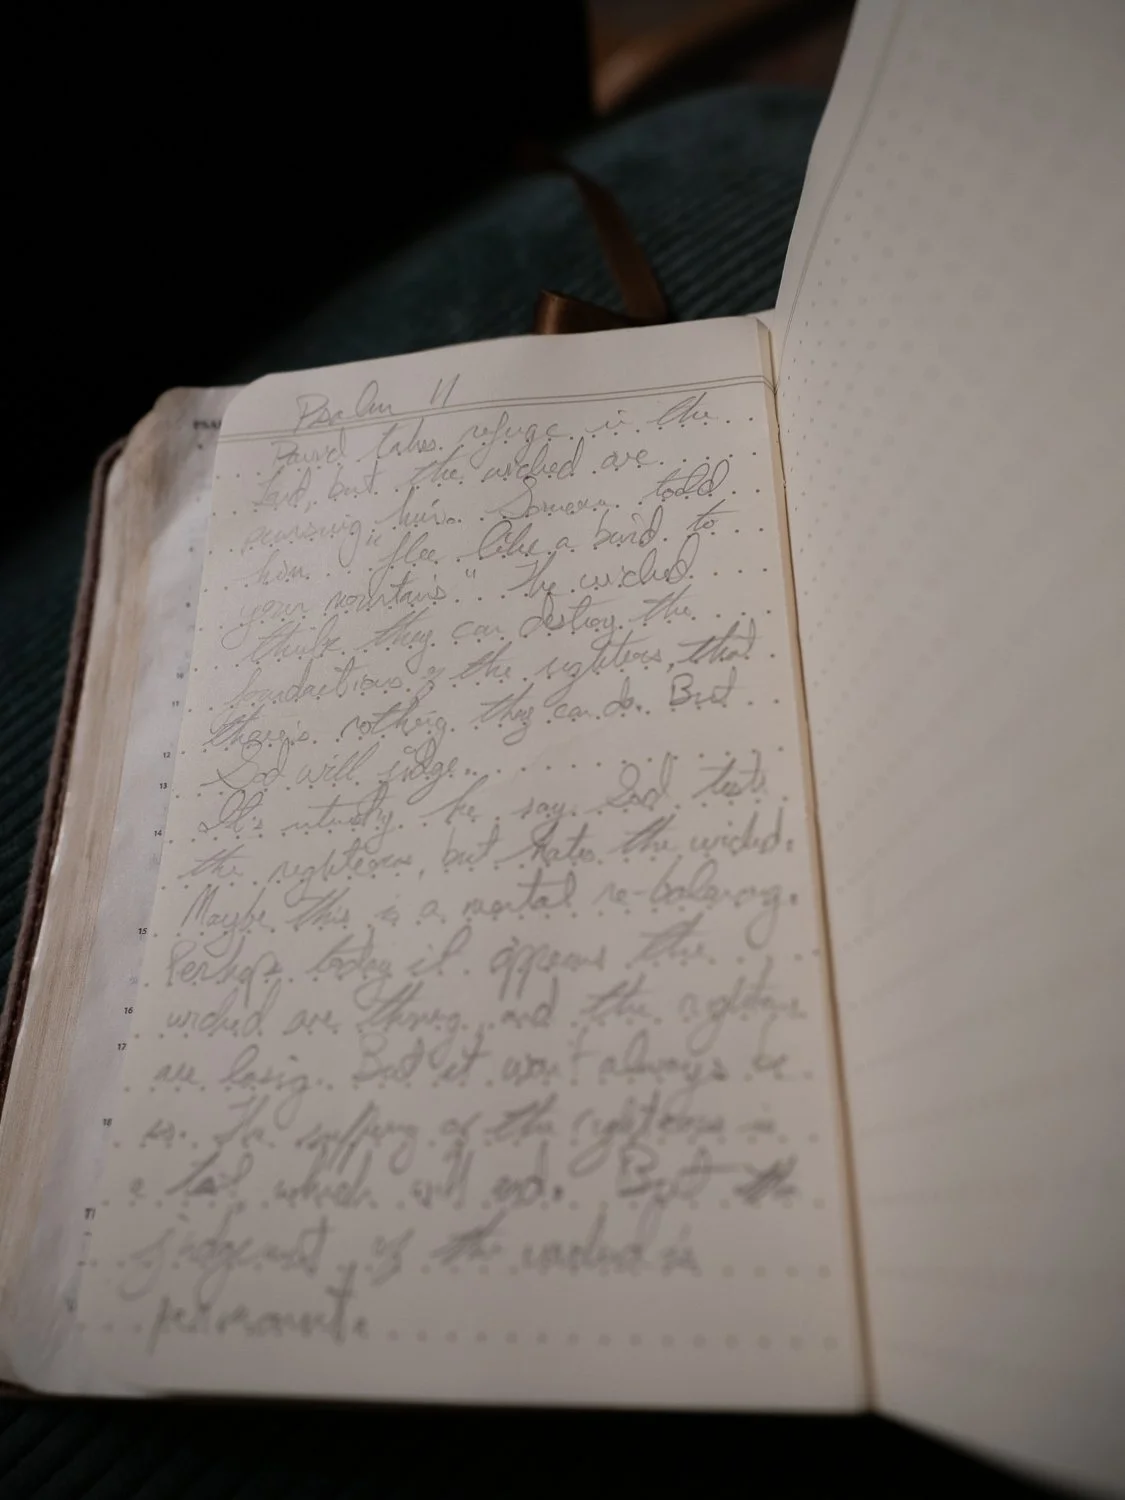 Psalm 11
David takes refuge in the
Lord, but the wicked are
pursuing him. Someone told
him "flee like a bird to
your mountains". The wicked
think they can destroy the
foundations of the righteous, that
there's nothing they can do. But
God will judge.
It's he say God tests
the righteous, but hates the wicked.
Maybe this is a mental re-balancing.
Perhaps today it appears the
wicked are thriving and the righteous
are losing. But it won't always be
so. The suffering of the righteous is
a test which will end. But the
judgement of the wicked is
permanent.
PSAL
10
11
12
13
14
15
16
17
18